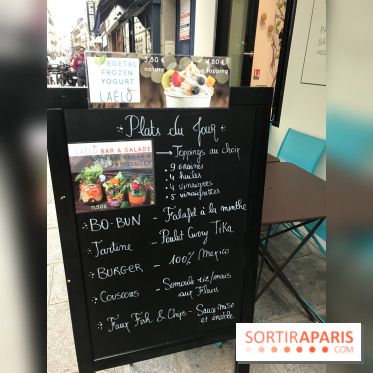 VEGETAL
FROZEN
YOGURT
LAÉLO
nature
topping
Plats du Jour
LAÉLO BAR A SALADE
→ Toppings au choix
• 9 graines
• 4 huiles
• 4 vinaigres
• 5 vinaigrettes
BO-BUN - Falafel à la menthe
Tartine - Poulet Curry Tika
BURGER - 100% Mexico
Couscous - Semoule riz/maïs
aux Fleurs
* Faux Fish & Chips - Sauce miso
et érable
SORTIRAPARIS
.COM